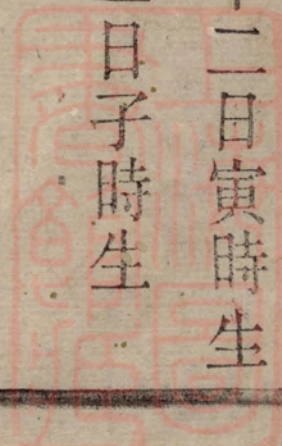 二日寅時生
日子時生